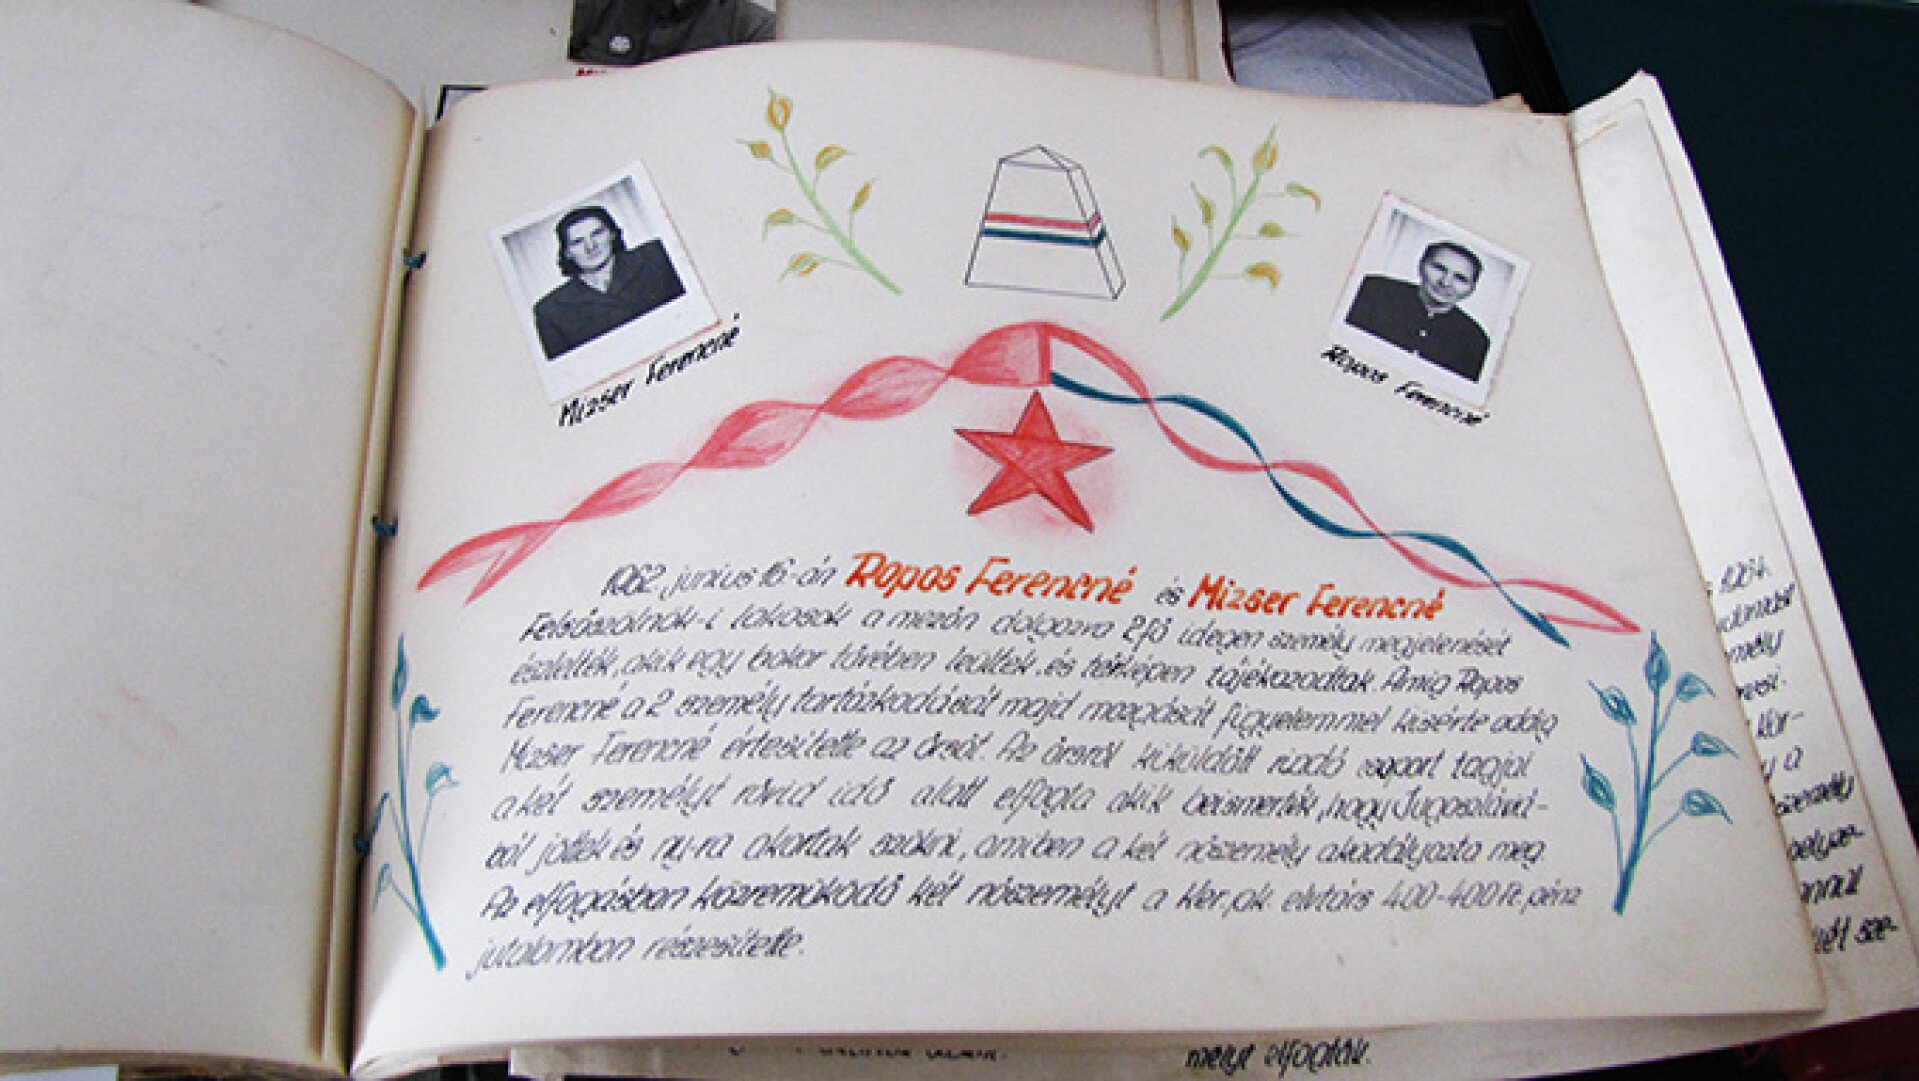 Mizser Ferencné
Ropos Ferencné
1962, június 16-án Ropos Ferencné és Mizser Ferencné
Felsőszölnök-i lakosok a mezőn dolgozva 2 fő idegen személy megjelenését
észlelték, akik egy bokor tövében leültek és térképen tájékozódtak. Amig Ropos
Ferencné a 2 személy tartózkodását majd mozgását figyelemmel kisérte addig
Mizser Ferencné értesitette az őrsöt. Az őrsről kiküldött riadó csoport tagjai
a két személyt rövid idő alatt elfogta akik beismerték, hogy Jugoszláviá-
ból jöttek és ny-ra akartak szökni, amiben a két nőszemély akadályozta meg.
Az elfogásban közreműködő két nőszemélyt a Ker. pk. elvtárs 400-400 Ft. pénz
jutalomban részesitette.
mélyt elfogták.